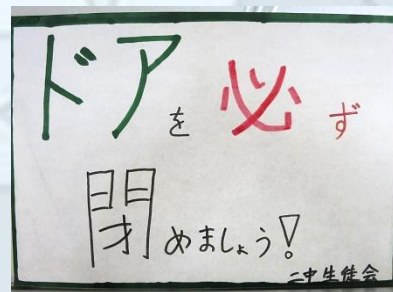 ドアを必ず
閉めましょう!
二中生徒会